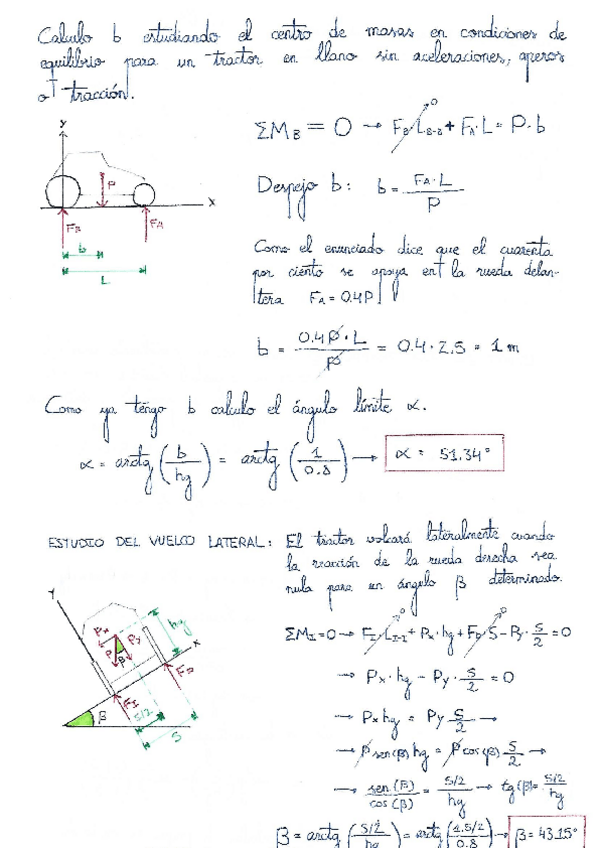 Calculo b estudiando el centro de masas en condiciones de
equilibrio para un tractor en llano sin aceleraciones, aperos
o tracción.
ΣM_B = 0 → F_B·L_B-B + F_A·L = P·b
0
Y
P
X
F_B
F_A
b
L
Despejo b: b = F_A·L / P
Como el enunciado dice que el cuarenta
por ciento se apoya en la rueda delan-
tera F_A = 0.4P
b = 0.4P·L / P = 0.4·2.5 = 1 m
Como ya tengo b calculo el ángulo límite α.
α = arctg (b / hg) = arctg (1 / 0.8) → α = 51.34°
ESTUDIO DEL VUELCO LATERAL: El tractor volcará lateralmente cuando
la reacción de la rueda derecha sea
nula para un ángulo β determinado.
Y
Px
P
Py
β
hg
X
F_D
F_I
β
S/2
S
ΣM_I = 0 → F_I·L_I-I + Px·hg + F_D·S - Py·S/2 = 0
0
0
→ Px·hg - Py·S/2 = 0
→ Px hg = Py S/2 →
→ P sen(β) hg = P cos(β) S/2 →
→ sen(β) / cos(β) = S/2 / hg → tg(β) = S/2 / hg
β = arctg (S/2 / hg) = arctg (1.5/2 / 0.8) → β = 43.15°